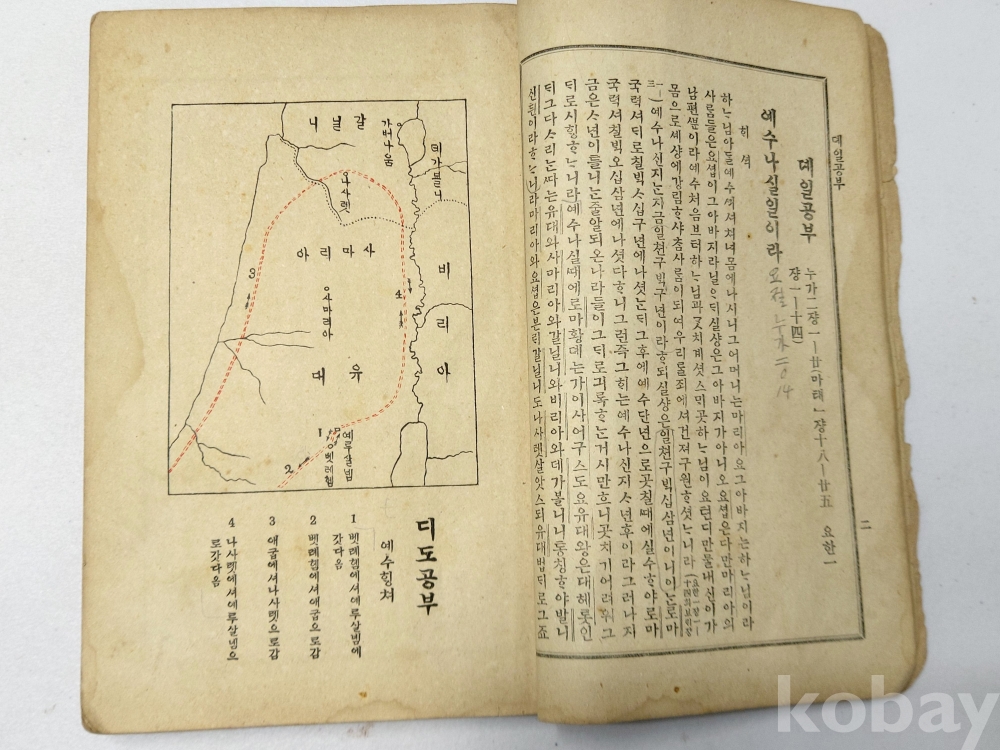 뎨일공부
二
뎨일공부 누가二쟝一—廿 마태一쟝十八—廿五 요한一
쟝一—十四
예수나실일이라 요절 누가 二〇 14
히셕
하ᄂᆞ님아ᄃᆞᆯ예수ᄭᅴ셔쳐녀몸에나시니그어머니는마리아요그아바지는하ᄂᆞ님이라
사ᄅᆞᆷ들은요셥이그아바지라닐ᄋᆞ되실샹은그아바지가아니오요셥은다만마리아의
남편ᄲᅮᆫ이라예수처음브터하ᄂᆞ님과ᄀᆞᆺ치계셧스며곳하ᄂᆞ님이요런디만물내신이가
몸으로셰샹에강림ᄒᆞ샤참사ᄅᆞᆷ이되여우리를죄에셔건져구원ᄒᆞ셧ᄂᆞ니라
예수나신지ᄂᆞᆫ지금일쳔구ᄇᆡᆨ구년이라ᄒᆞ되실샹은일쳔구ᄇᆡᆨ십삼년이니이ᄂᆞᆫ로마
국력셔긔로칠ᄇᆡᆨᄉᆞ십구년에나셧ᄂᆞᆫᄃᆡ그후에예수단년으로곳칠때에실수ᄒᆞ야로마
국력셔칠ᄇᆡᆨ오십삼년에나셧다ᄒᆞ니그런즉그ᄒᆡ는예수나신지ᄉᆞ년후이라그러나지
금은ᄉᆞ년이틀니ᄂᆞᆫ줄알되온나라들이그ᄃᆡ로긔록ᄒᆞᆫ거시만흐니곳치기어려워그
ᄃᆡ로시ᄒᆡᆼᄒᆞᄂᆞ니라예수나실때에로마황뎨는가이사어구스도요유대왕은대헤롯인
ᄃᆡ그다ᄉᆞ리ᄂᆞᆫᄯᅡ는유대와사마리아와갈닐니와비리아와데가볼니니통칭ᄒᆞ야발니
션이라ᄒᆞᄂᆞ니라마리아와요셥은본ᄃᆡ갈닐니도나사렛살앗스되유대법ᄃᆡ로그죠
갈닐니
가버나움
데가볼니
나사렛
사마리아
사마리아
비리아
유대
예루살넴
벳레헴
1
2
3
4
디도공부
예수ᄒᆡᆼ쳐
1 벳레헴에셔예루살넴에
갓다옴
2 벳레헴에셔애굽으로감
3 애굽에셔나사렛으로감
4 나사렛에셔예루살넴으
로갓다옴
kobay